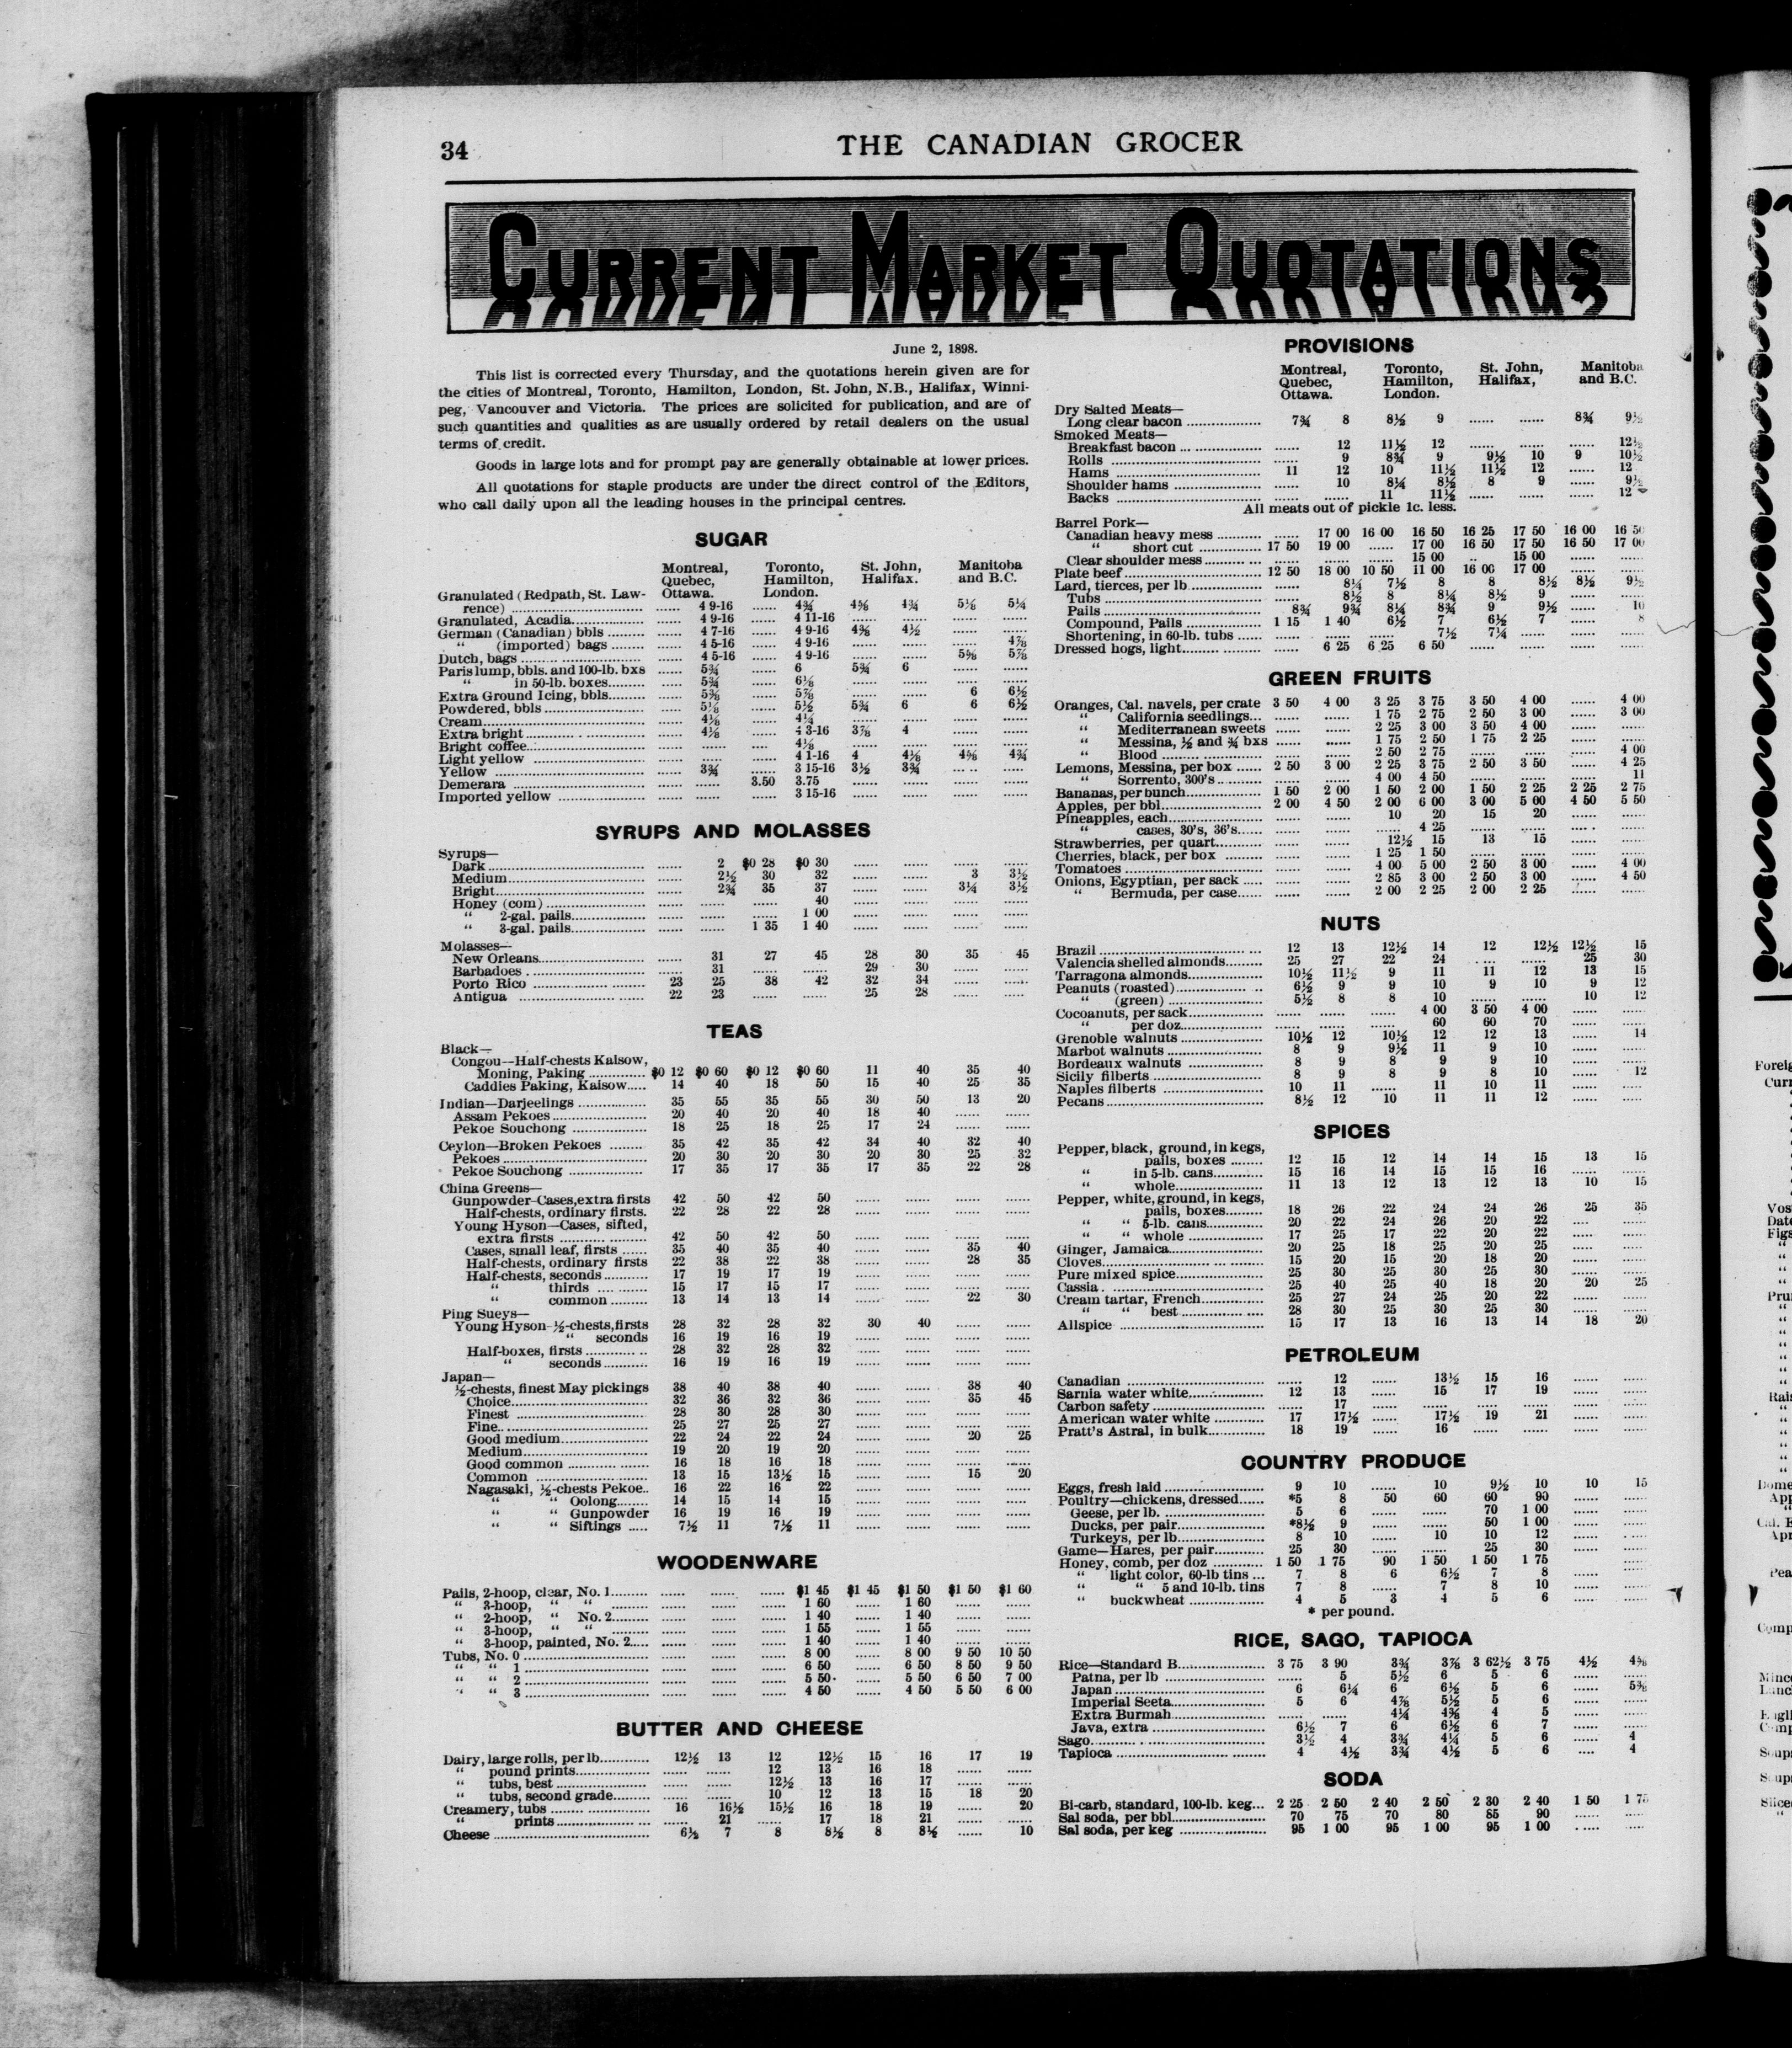 34
THE CANADIAN GROCER
CURRENT MARKET QUOTATIONS
June 2, 1898.
This list is corrected every Thursday, and the quotations herein given are for
the cities of Montreal, Toronto, Hamilton, London, St. John, N.B., Halifax, Winni-
peg, Vancouver and Victoria. The prices are solicited for publication, and are of
such quantities and qualities as are usually ordered by retail dealers on the usual
terms of credit.
Goods in large lots and for prompt pay are generally obtainable at lower prices.
All quotations for staple products are under the direct control of the Editors,
who call daily upon all the leading houses in the principal centres.
SUGAR
Montreal, Toronto, St. John, Manitoba
Quebec, Hamilton, Halifax. and B.C.
Ottawa. London.
Granulated (Redpath, St. Law-
rence) ...... 4 9-16 ...... 4¾ 4⅝ 4¾ 5⅛ 5¼
Granulated, Acadia ...... 4 9-16 ...... 4 11-16
German (Canadian) bbls ...... 4 7-16 ...... 4 9-16 4⅜ 4½
“ (imported) bags ...... 4 5-16 ...... 4 9-16 ...... 4⅞
Dutch, bags ...... 4 5-16 ...... 4 9-16 ...... 5⅝ 5⅞
Paris lump, bbls. and 100-lb. bxs ...... 5¾ ...... 6 5¾ 6
“ in 50-lb. boxes ...... 5¾ ...... 6⅛
Extra Ground Icing, bbls ...... 5⅜ ...... 5⅞ ...... 6 6½
Powdered, bbls ...... 5⅛ ...... 5½ 5¾ 6 6 6½
Cream ...... 4⅛ ...... 4¼
Extra bright ...... 4⅛ ...... 4 3-16 3⅞ 4
Bright coffee ...... 4⅛
Light yellow ...... 4 1-16 4 4⅛ 4⅝ 4¾
Yellow ...... 3¾ ...... 3 15-16 3½ 3¾
Demerara ...... 3.50 3.75
Imported yellow ...... 3 15-16
SYRUPS AND MOLASSES
Syrups—
Dark ...... 2 $0 28 $0 30
Medium ...... 2½ 30 32 ...... 3 3½
Bright ...... 2¾ 35 37 ...... 3¼ 3½
Honey (com) ...... 40
“ 2-gal. pails ...... 1 00
“ 3-gal. pails ...... 1 35 1 40
Molasses—
New Orleans ...... 31 27 45 28 30 35 45
Barbadoes ...... 31 ...... 29 30
Porto Rico ...... 23 25 38 42 32 34
Antigua ...... 22 23 ...... 25 28
TEAS
Black—
Congou—Half-chests Kaisow,
Moning, Paking ...... $0 12 $0 60 $0 12 $0 60 11 40 35 40
Caddies Paking, Kaisow ..... 14 40 18 50 15 40 25 35
Indian—Darjeelings ...... 35 55 35 55 30 50 13 20
Assam Pekoes ...... 20 40 20 40 18 40
Pekoe Souchong ...... 18 25 18 25 17 24
Ceylon—Broken Pekoes ...... 35 42 35 42 34 40 32 40
Pekoes ...... 20 30 20 30 20 30 25 32
Pekoe Souchong ...... 17 35 17 35 17 35 22 28
China Greens—
Gunpowder—Cases, extra firsts 42 50 42 50
Half-chests, ordinary firsts. 22 28 22 28
Young Hyson—Cases, sifted,
extra firsts ...... 42 50 42 50
Cases, small leaf, firsts ...... 35 40 35 40 ...... 35 40
Half-chests, ordinary firsts 22 38 22 38 ...... 28 35
Half-chests, seconds ...... 17 19 17 19
“ thirds ...... 15 17 15 17
“ common ...... 13 14 13 14 ...... 22 30
Ping Sueys—
Young Hyson-½-chests, firsts 28 32 28 32 30 40
“ seconds 16 19 16 19
Half-boxes, firsts ...... 28 32 28 32
“ seconds ...... 16 19 16 19
Japan—
½-chests, finest May pickings 38 40 38 40 ...... 38 40
Choice ...... 32 36 32 36 ...... 35 45
Finest ...... 28 30 28 30
Fine ...... 25 27 25 27
Good medium ...... 22 24 22 24 ...... 20 25
Medium ...... 19 20 19 20
Good common ...... 16 18 16 18
Common ...... 13 15 13½ 15 ...... 15 20
Nagasaki, ½-chests Pekoe.. 16 22 16 22
“ “ Oolong ...... 14 15 14 15
“ “ Gunpowder 16 19 16 19
“ “ Siftings ..... 7½ 11 7½ 11
WOODENWARE
Pails, 2-hoop, clear, No. 1 ...... $1 45 $1 45 $1 50 $1 50 $1 60
“ 3-hoop, “ “ ...... 1 60 ...... 1 60
“ 2-hoop, “ No. 2 ...... 1 40 ...... 1 40
“ 3-hoop, “ “ ...... 1 55 ...... 1 55
“ 3-hoop, painted, No. 2 ..... 1 40 ...... 1 40
Tubs, No. 0 ...... 8 00 ...... 8 00 9 50 10 50
“ “ 1 ...... 6 50 ...... 6 50 8 50 9 50
“ “ 2 ...... 5 50 ...... 5 50 6 50 7 00
“ “ 3 ...... 4 50 ...... 4 50 5 50 6 00
BUTTER AND CHEESE
Dairy, large rolls, per lb ...... 12½ 13 12 12½ 15 16 17 19
“ pound prints ...... 12 13 16 18
“ tubs, best ...... 12½ 13 16 17
“ tubs, second grade ...... 10 12 13 15 18 20
Creamery, tubs ...... 16 16½ 15½ 16 18 19 ...... 20
“ prints ...... 21 ...... 17 18 21
Cheese ...... 6½ 7 8 8½ 8 8½ ...... 10
PROVISIONS
Montreal, Toronto, St. John, Manitoba
Quebec, Hamilton, Halifax, and B.C.
Ottawa. London.
Dry Salted Meats—
Long clear bacon ...... 7¾ 8 8½ 9 ...... 8¾ 9½
Smoked Meats—
Breakfast bacon ...... 12 11½ 12 ...... 12½
Rolls ...... 9 8¾ 9 9½ 10 9 10½
Hams ...... 11 12 10 11½ 11½ 12 ...... 12
Shoulder hams ...... 10 8¼ 8½ 8 9 ...... 9½
Backs ...... 11 11½ ...... 12
All meats out of pickle 1c. less.
Barrel Pork—
Canadian heavy mess ...... 17 00 16 00 16 50 16 25 17 50 16 00 16 50
“ short cut ...... 17 50 19 00 ...... 17 00 16 50 17 50 16 50 17 00
Clear shoulder mess ...... 15 00 .. 15 00
Plate beef ...... 12 50 18 00 10 50 11 00 16 00 17 00
Lard, tierces, per lb ...... 8¼ 7½ 8 8 8½ 8½ 9½
Tubs ...... 8½ 8 8¼ 8½ 9
Pails ...... 8¾ 9¾ 8¼ 8¾ 9 9½ ...... 10
Compound, Pails ...... 1 15 1 40 6½ 7 6½ 7 ...... 8
Shortening, in 60-lb. tubs ...... 7½ 7¼
Dressed hogs, light ...... 6 25 6 25 6 50
GREEN FRUITS
Oranges, Cal. navels, per crate 3 50 4 00 3 25 3 75 3 50 4 00 ...... 4 00
“ California seedlings... 1 75 2 75 2 50 3 00 ...... 3 00
“ Mediterranean sweets ...... 2 25 3 00 3 50 4 00
“ Messina, ½ and ¾ bxs ...... 1 75 2 50 1 75 2 25
“ Blood ...... 2 50 2 75 ...... 4 00
Lemons, Messina, per box ...... 2 50 3 00 2 25 3 75 2 50 3 50 ...... 4 25
“ Sorrento, 300's ...... 4 00 4 50 ...... 11
Bananas, per bunch ...... 1 50 2 00 1 50 2 00 1 50 2 25 2 25 2 75
Apples, per bbl ...... 2 00 4 50 2 00 6 00 3 00 5 00 4 50 5 50
Pineapples, each ...... 10 20 15 20
“ cases, 30's, 36's ...... 4 25
Strawberries, per quart ...... 12½ 15 13 15
Cherries, black, per box ...... 1 25 1 50
Tomatoes ...... 4 00 5 00 2 50 3 00 ...... 4 00
Onions, Egyptian, per sack ..... 2 85 3 00 2 50 3 00 ...... 4 50
“ Bermuda, per case ...... 2 00 2 25 2 00 2 25
NUTS
Brazil ...... 12 13 12½ 14 12 12½ 12½ 15
Valencia shelled almonds ...... 25 27 22 24 ...... 25 30
Tarragona almonds ...... 10½ 11½ 9 11 11 12 13 15
Peanuts (roasted) ...... 6½ 9 9 10 9 10 9 12
“ (green) ...... 5½ 8 8 10 ...... 10 12
Cocoanuts, per sack ...... 4 00 3 50 4 00
“ per doz ...... 60 60 70
Grenoble walnuts ...... 10½ 12 10½ 12 12 13 ...... 14
Marbot walnuts ...... 8 9 9½ 11 9 10
Bordeaux walnuts ...... 8 9 8 9 9 10
Sicily filberts ...... 8 9 8 9 8 10 ...... 12
Naples filberts ...... 10 11 ...... 11 10 11
Pecans ...... 8½ 12 10 11 11 12
SPICES
Pepper, black, ground, in kegs,
pails, boxes ...... 12 15 12 14 14 15 13 15
“ in 5-lb. cans ...... 15 16 14 15 15 16
“ whole ...... 11 13 12 13 12 13 10 15
Pepper, white, ground, in kegs,
pails, boxes ...... 18 26 22 24 24 26 25 35
“ “ 5-lb. cans ...... 20 22 24 26 20 22
“ “ whole ...... 17 25 17 22 20 22
Ginger, Jamaica ...... 20 25 18 25 20 25
Cloves ...... 15 20 15 20 18 20
Pure mixed spice ...... 25 30 25 30 25 30
Cassia ...... 25 40 25 40 18 20 20 25
Cream tartar, French ...... 25 27 24 25 20 22
“ “ best ...... 28 30 25 30 25 30
Allspice ...... 15 17 13 16 13 14 18 20
PETROLEUM
Canadian ...... 12 ...... 13½ 15 16
Sarnia water white ...... 12 13 ...... 15 17 19
Carbon safety ...... 17
American water white ...... 17 17½ ...... 17½ 19 21
Pratt's Astral, in bulk ...... 18 19 ...... 16
COUNTRY PRODUCE
Eggs, fresh laid ...... 9 10 ...... 10 9½ 10 10 15
Poultry—chickens, dressed ...... *5 8 50 60 60 90
Geese, per lb. ...... 5 6 ...... 70 1 00
Ducks, per pair ...... *8½ 9 ...... 50 1 00
Turkeys, per lb ...... 8 10 ...... 10 10 12
Game—Hares, per pair ...... 25 30 ...... 25 30
Honey, comb, per doz ...... 1 50 1 75 90 1 50 1 50 1 75
“ light color, 60-lb tins ... 7 8 6 6½ 7 8
“ “ 5 and 10-lb. tins 7 8 ...... 7 8 10
“ buckwheat ...... 4 5 3 4 5 6
* per pound.
RICE, SAGO, TAPIOCA
Rice—Standard B ...... 3 75 3 90 3¾ 3⅞ 3 62½ 3 75 4½ 4⅝
Patna, per lb ...... 5 5½ 6 5 6
Japan ...... 6 6¼ 6 6½ 5 6 ...... 5⅜
Imperial Seeta ...... 5 6 4⅞ 5½ 5 6
Extra Burmah ...... 4¼ 4⅜ 4 5
Java, extra ...... 6½ 7 6 6½ 6 7
Sago ...... 3½ 4 3¾ 4¼ 5 6 ...... 4
Tapioca ...... 4 4½ 3¾ 4½ 5 6 .... 4
SODA
Bi-carb, standard, 100-lb. keg... 2 25 2 50 2 40 2 50 2 30 2 40 1 50 1 75
Sal soda, per bbl ...... 70 75 70 80 85 90
Sal soda, per keg ...... 95 1 00 95 1 00 95 1 00